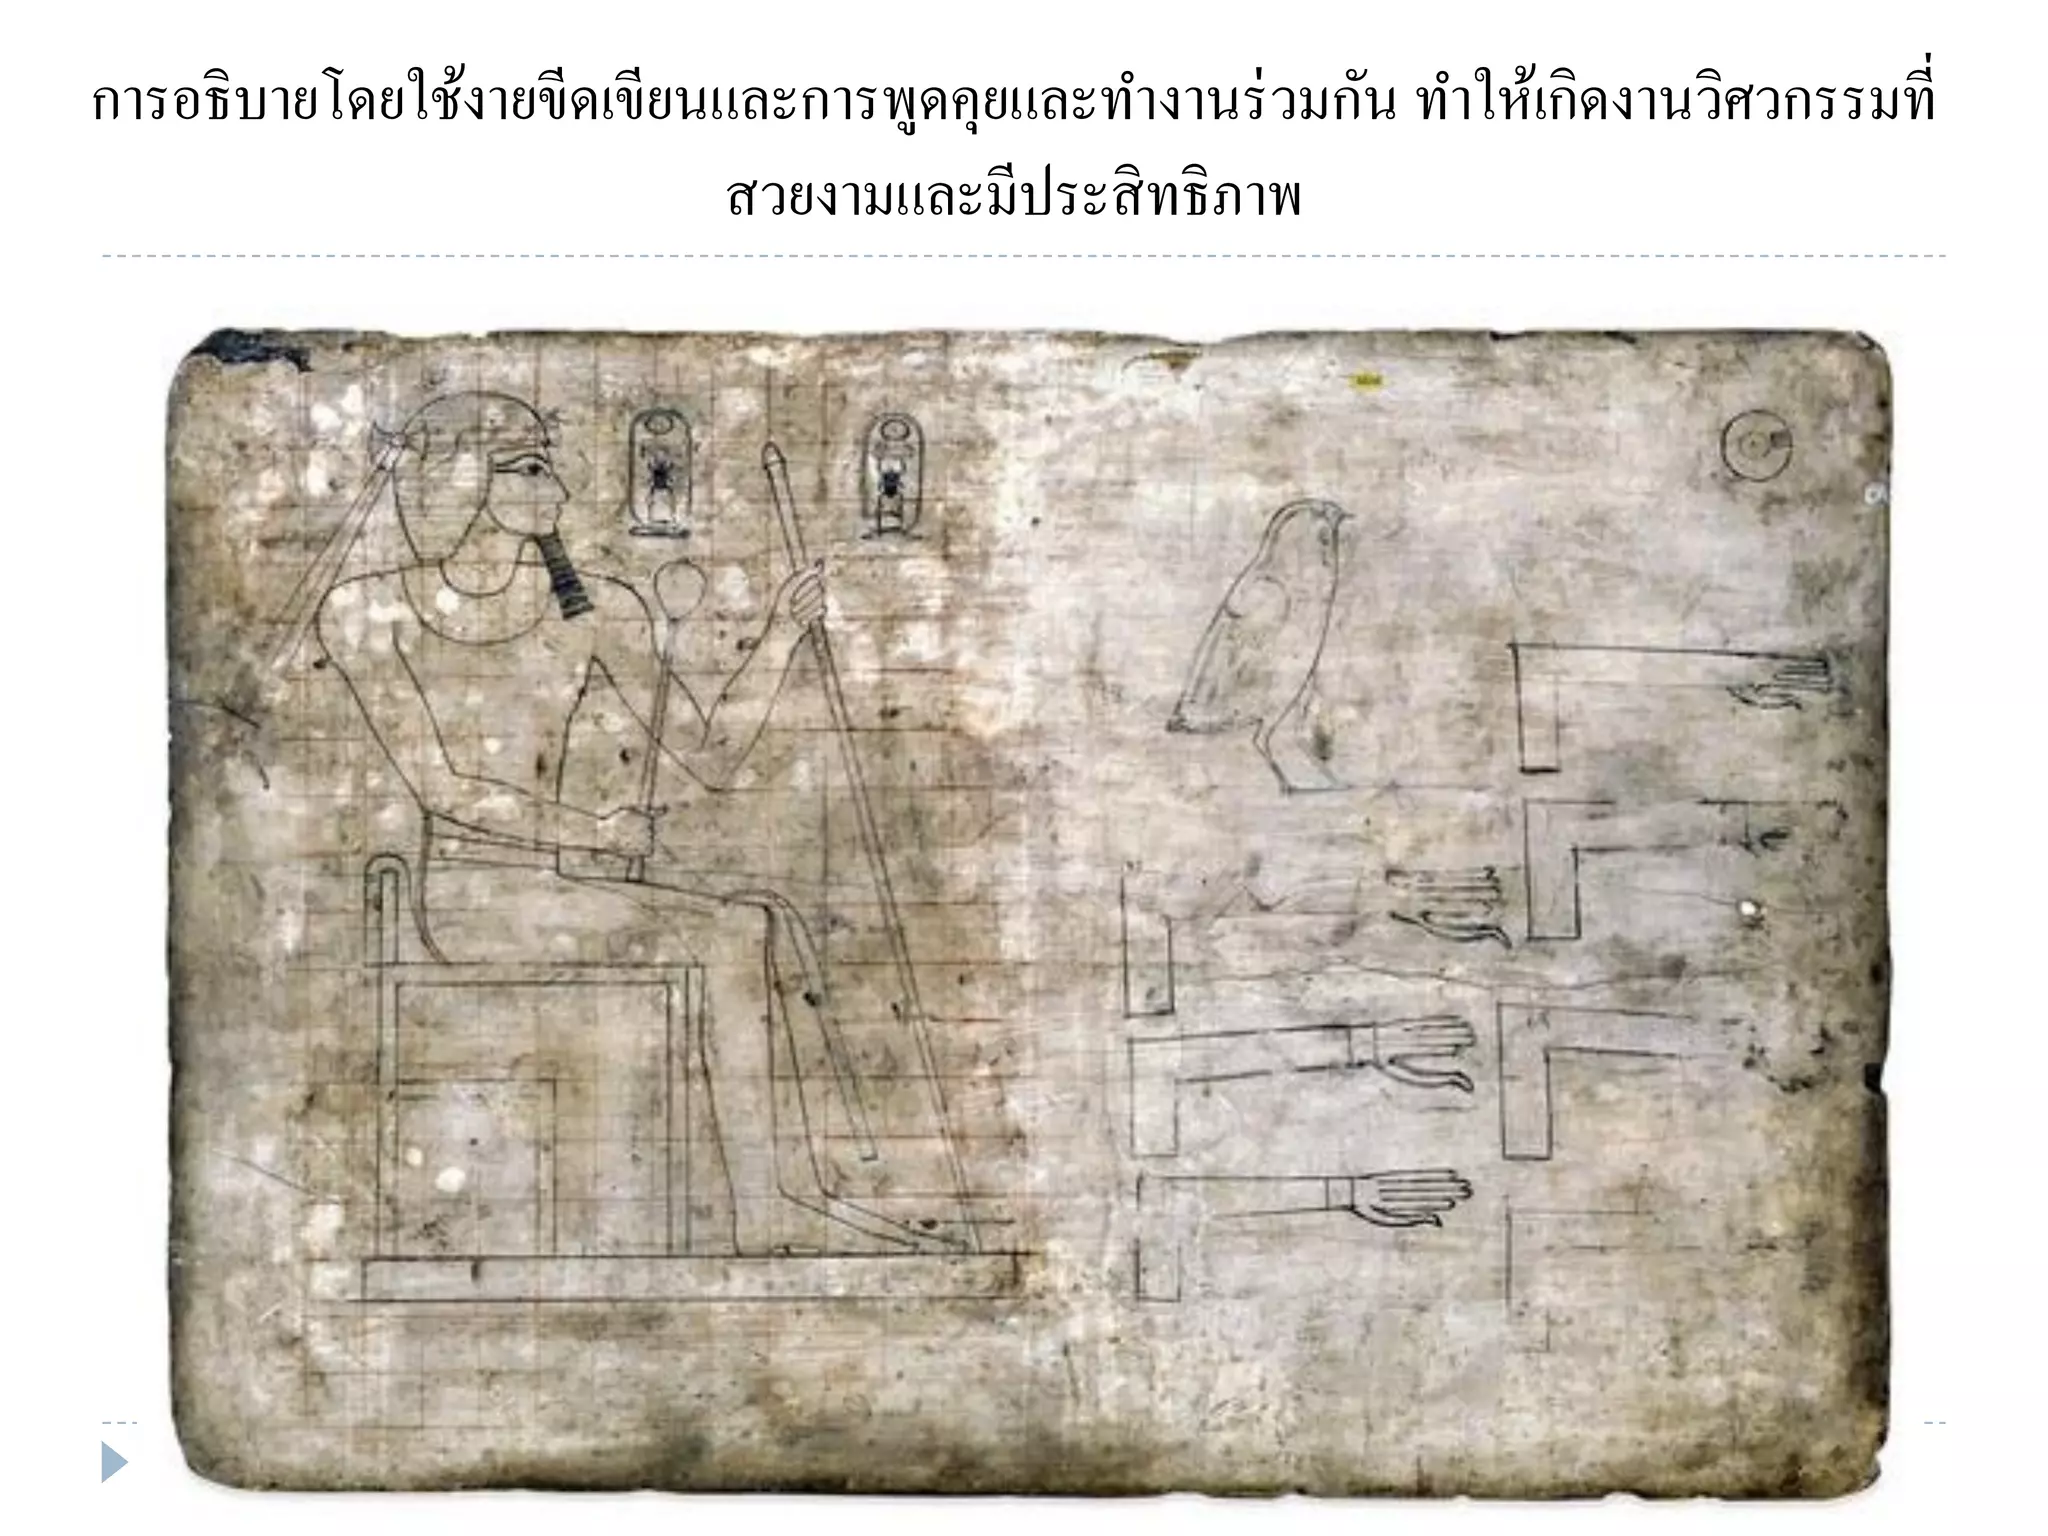 การอธิบายโดยใช้งายขีดเขียนและการพูดคุยและทำงานร่วมกัน ทำให้เกิดงานวิศวกรรมที่
สวยงามและมีประสิทธิภาพ